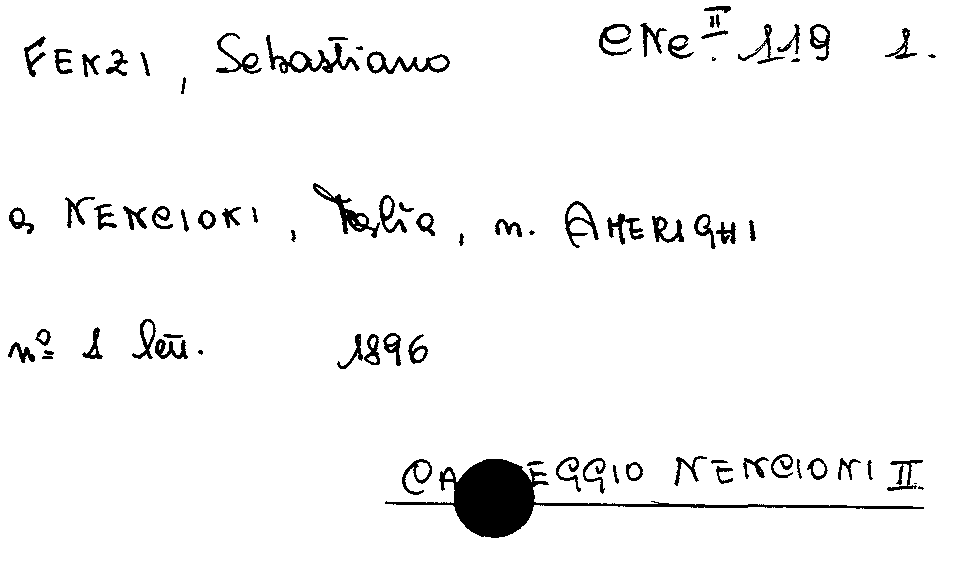 FENZI, Sebastiano CNe.II 119 1.
a NENCIONI, Talia, n. AMERIGHI
nº 1 lett. 1896
CA EGGIO NENCIONI II